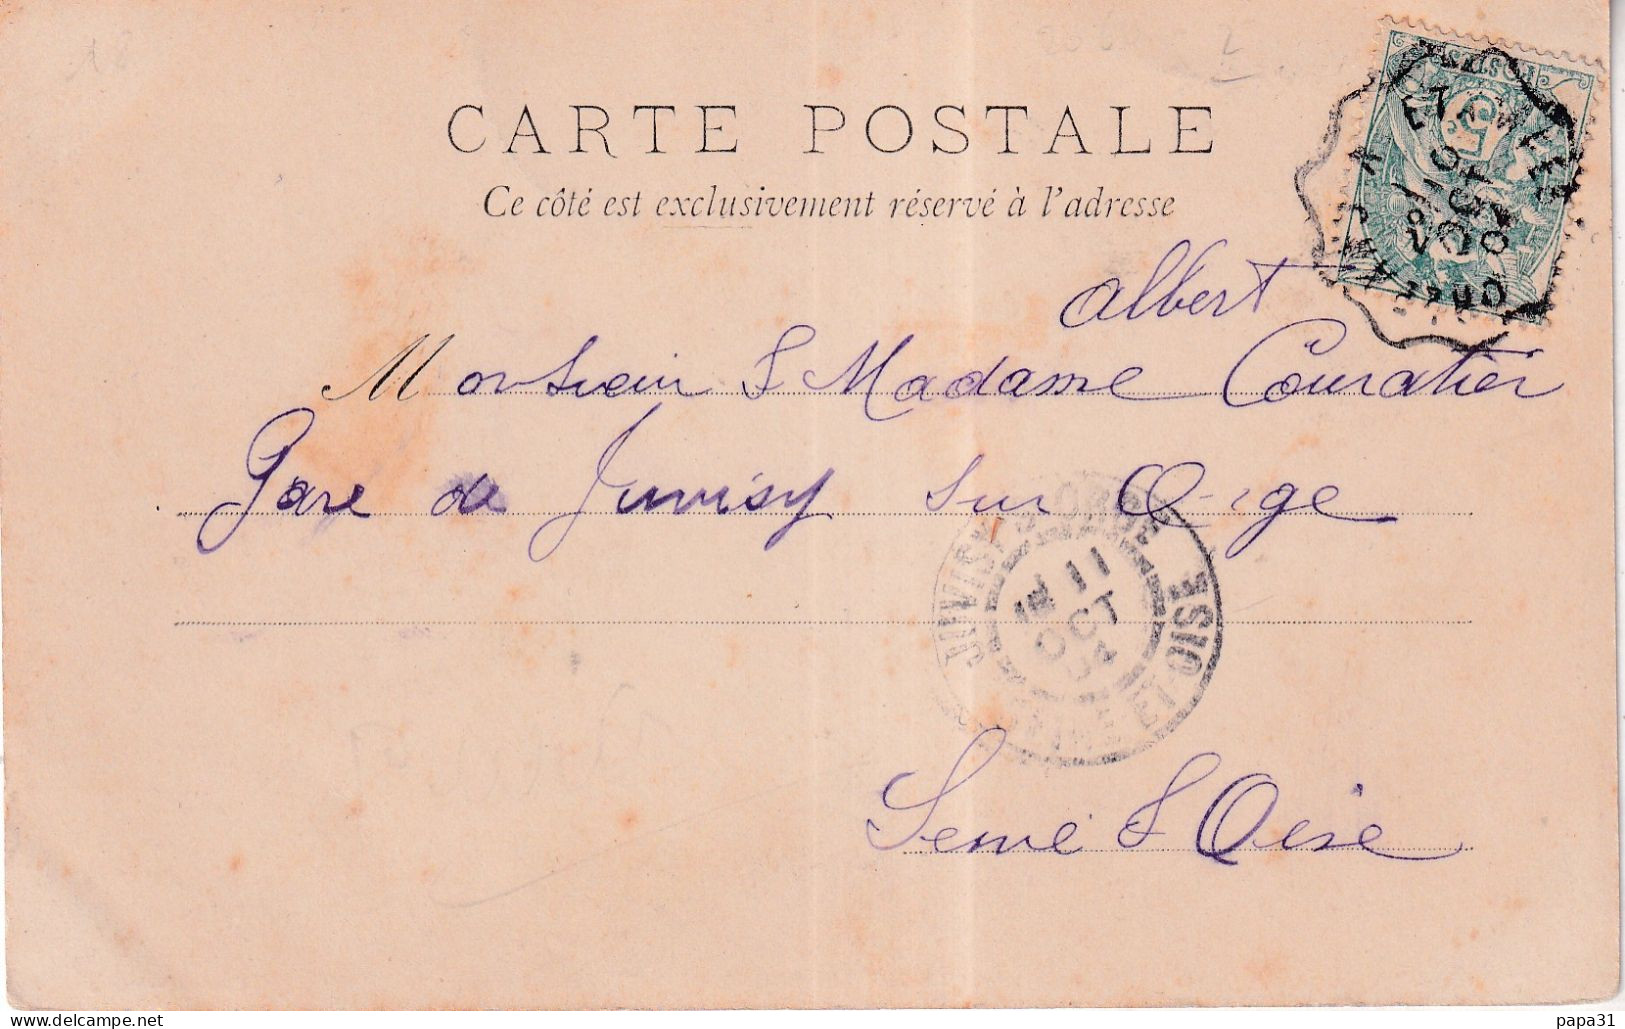 CARTE POSTALE
Ce côté est exclusivement réservé à l'adresse
POSTES
5
OCT
04
Albert
Monsieur & Madame Couratier
Gare de Juvisy sur Orge
JUVISY S ORGE
11
OCT
04
SEINE-ET-OISE
Seine & Oise
www.delcampe.net
papa31